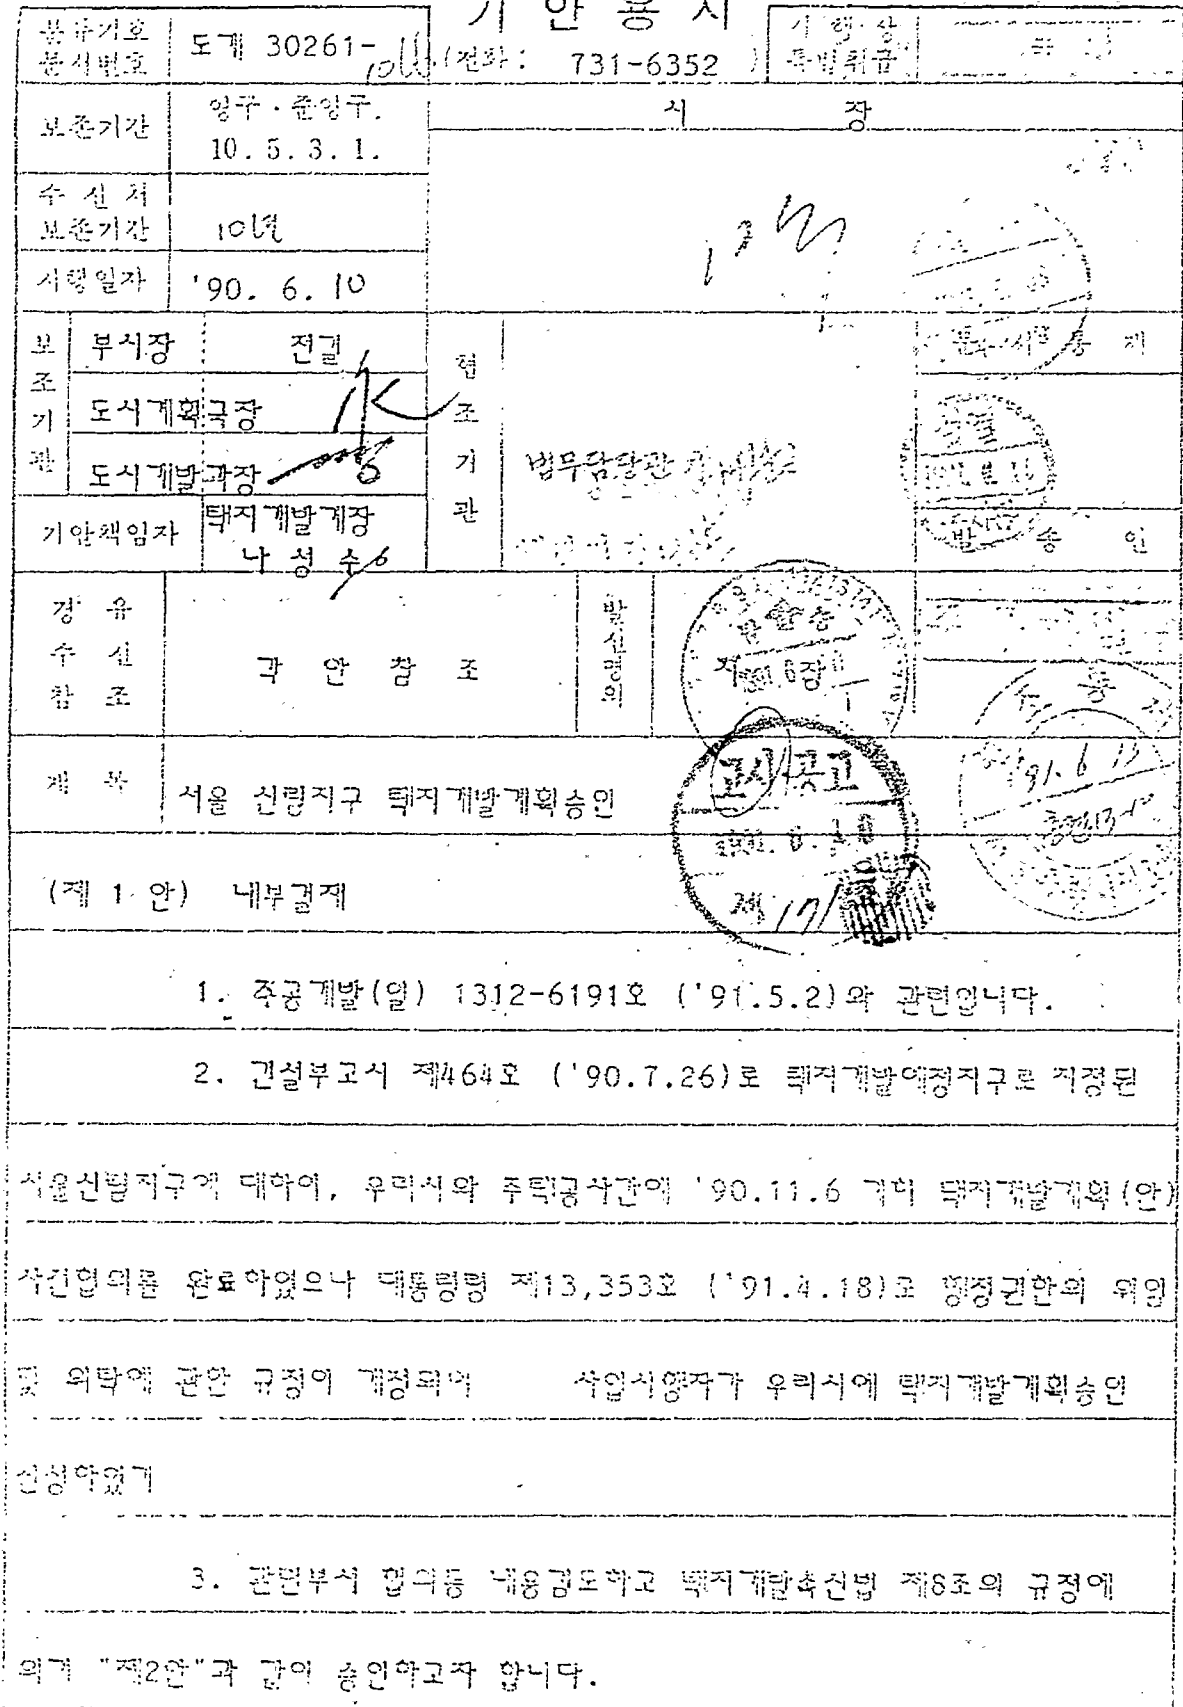 기 안 용 지
분류기호
문서번호
도개 30261-
(전화: 731-6352 )
시 행 상
특별취급
보존기간
영구·준영구.
10. 5. 3. 1.
시 장
수 신 처
보존기간
10년
시행일자
'90. 6. 10
보조기관
부시장
전결
도시계획국장
도시개발과장
협조기관
법무담당관
기안책임자
택지개발계장
나 성 수
발 송 인
경 유
수 신
참 조
각 안 참 조
발신명의
시 장
제 목
서울 신림지구 택지개발계획승인
고시공고
제 171
'91. 6. 13
(제 1 안) 내부결재
1. 주공개발(일) 1312-6191호 ('91.5.2)와 관련입니다.
2. 건설부고시 제464호 ('90.7.26)로 택지개발예정지구로 지정된
서울신림지구에 대하여, 우리시와 주택공사간에 '90.11.6 기히 택지개발계획(안)
사전협의를 완료하였으나 대통령령 제13,353호 ('91.4.18)로 행정권한의 위임
및 위탁에 관한 규정이 개정되어 사업시행자가 우리시에 택지개발계획승인
신청하였기
3. 관련부서 협의등 내용검토하고 택지개발촉진법 제8조의 규정에
의거 "제2안"과 같이 승인하고자 합니다.